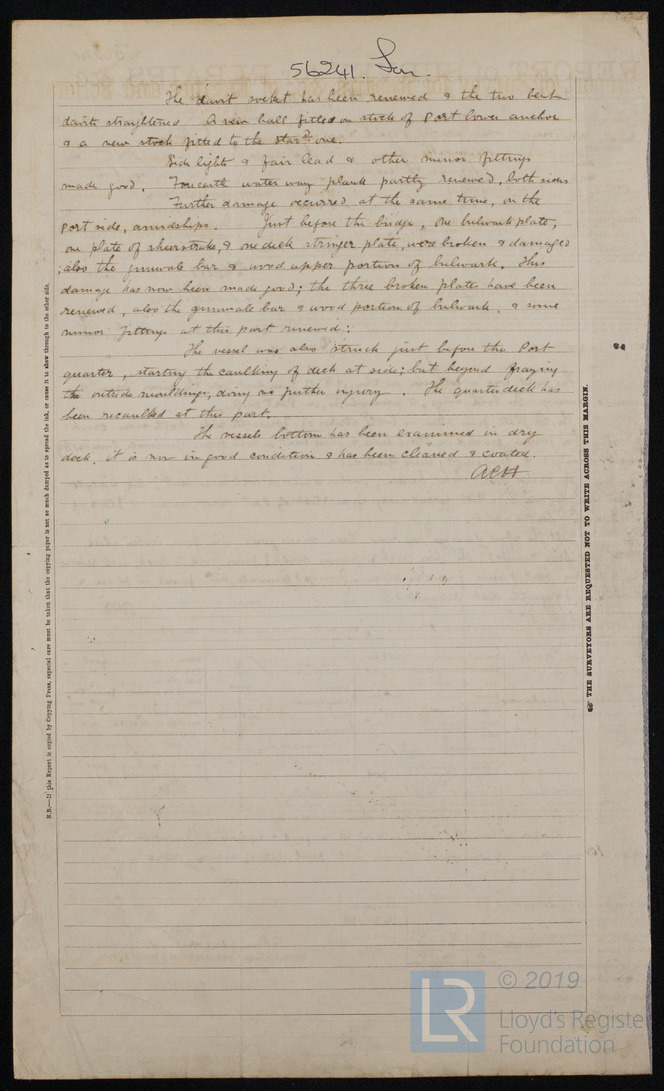 56241. Lon.
The davit socket has been renewed & the two bent
davits straightened. A new ball fitted on stock of Port bower anchor
& a new stock fitted to the Starbd one.
Side light & fair lead & other minor fittings
made good. Forecastle water way plank partly renewed, both sides
Further damage occurred at the same time, on the
port side, amidships. Just before the bridge, one bulwark plate,
one plate of sheerstrake, & one deck stringer plate, were broken & damaged
also the gunwale bar & wood upper portion of bulwark. This
damage has now been made good; the three broken plates have been
renewed, also the gunwale bar & wood portion of bulwark. & some
minor fittings at this part renewed:
The vessel was also struck just before the Port
quarter, starting the caulking of deck at side; but beyond fraying
the outside mouldings, doing no further injury. The quarter deck has
been recaulked at this part.
The vessels bottom has been examined in dry
dock. it is now in good condition & has been cleaned & coated.
N.B.—If this Report is copied by Copying Press, especial care must be taken that the copying paper is not so much damped as to spread the ink, or cause it to show through to the other side.
THE SURVEYORS ARE REQUESTED NOT TO WRITE ACROSS THIS MARGIN.
LR
© 2019
Lloyd's Register
Foundation